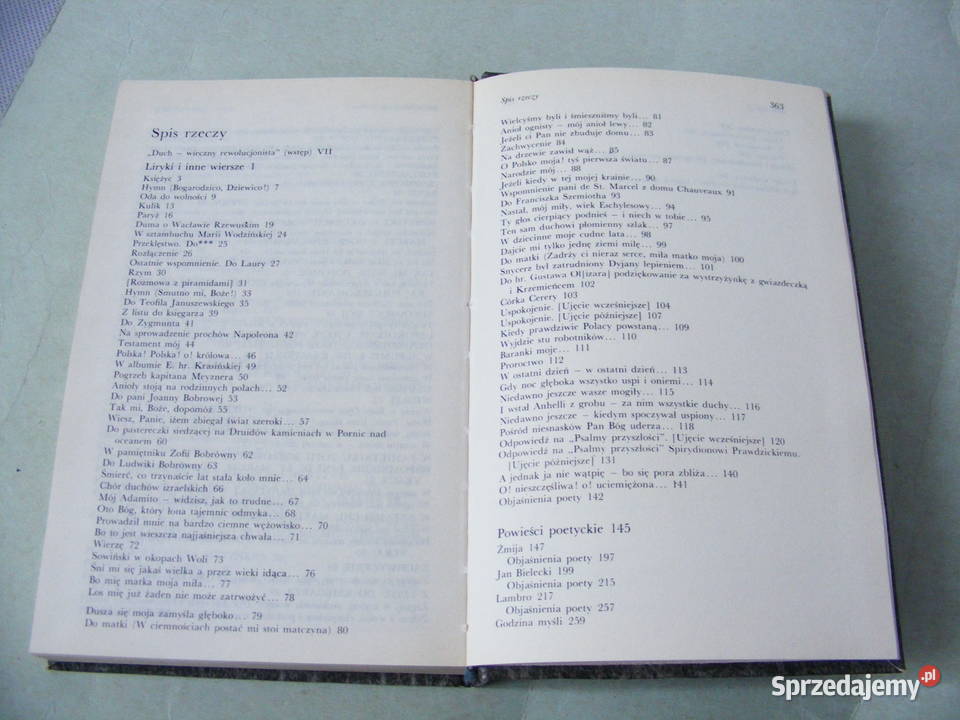 Spis rzeczy
„Duch — wieczny rewolucjonista” (wstęp) VII
Liryki i inne wiersze 1
Księżyc 3
Hymn (Bogarodzico, Dziewico!) 7
Oda do wolności 9
Kulik 13
Paryż 16
Duma o Wacławie Rzewuskim 19
W sztambuchu Marii Wodzińskiej 24
Przekleństwo. Do*** 25
Rozłączenie 26
Ostatnie wspomnienie. Do Laury 27
Rzym 30
[Rozmowa z piramidami] 31
Hymn (Smutno mi, Boże!) 33
Do Teofila Januszewskiego 35
Z listu do księgarza 39
Do Zygmunta 41
Na sprowadzenie prochów Napoleona 42
Testament mój 44
Polska! Polska! o! królowa... 46
W albumie E. hr. Krasińskiej 49
Pogrzeb kapitana Meyznera 50
Anioły stoją na rodzinnych polach... 52
Do pani Joanny Bobrowej 53
Tak mi, Boże, dopomóż 55
Wiesz, Panie, iżem zbiegał świat szeroki... 57
Do pastereczki siedzącej na Druidów kamieniach w Pornic nad
oceanem 60
W pamiętniku Zofii Bobrówny 62
Do Ludwiki Bobrówny 63
Śmierć, co trzynaście lat stała koło mnie... 64
Chór duchów izraelskich 66
Mój Adamito — widzisz, jak to trudne... 67
Oto Bóg, który łona tajemnic odmyka... 68
Prowadził mnie na bardzo ciemne wężowisko... 70
Bo to jest wieszcza najjaśniejsza chwała... 71
Wierzę 72
Sowiński w okopach Woli 73
Śni mi się jakaś wielka a przez wieki idąca... 76
Bo mię matka moja miła... 77
Los mię już żaden nie może zatrwożyć... 78
Dusza się moja zamyśla głęboko... 79
Do matki (W ciemnościach postać mi stoi matczyna) 80
Spis rzeczy 363
Wielcyśmy byli i śmieszniśmy byli... 81
Anioł ognisty — mój anioł lewy... 82
Jeżeli ci Pan nie zbuduje domu... 83
Zachwycenie 84
Na drzewie zawisł wąż... 85
O Polsko moja! tyś pierwsza światu... 87
Narodzie mój... 88
Jeżeli kiedy w tej mojej krainie... 90
Wspomnienie pani de St. Marcel z domu Chauveaux 91
Do Franciszka Szemiotha 93
Nastał, mój miły, wiek Eschylesowy... 94
Ty głos cierpiący podnieś — i niech w tobie... 95
Ten sam duchowi płomienny szlak... 97
W dziecinne moje cudne lata... 98
Dajcie mi tylko jedną ziemi milę... 99
Do matki (Zadrży ci nieraz serce, miła matko moja) 100
Snycerz był zatrudniony Dyjany lepieniem... 101
Do hr. Gustawa Ol[izara] podziękowanie za wystrzyżynkę z gwiazdeczką
i Krzemieńcem 102
Córka Cerery 103
Uspokojenie. [Ujęcie wcześniejsze] 104
Uspokojenie. [Ujęcie późniejsze] 107
Kiedy prawdziwie Polacy powstaną... 109
Wyjdzie stu robotników... 110
Baranki moje... 111
Proroctwo 112
W ostatni dzień — w ostatni dzień... 113
Gdy noc głęboka wszystko uspi i oniemi... 114
Niedawno jeszcze wasze mogiły... 115
I wstał Anhelli z grobu — za nim wszystkie duchy... 116
Niedawno jeszcze — kiedym spoczywał uspiony... 117
Pośród niesnasków Pan Bóg uderza... 118
Odpowiedź na „Psalmy przyszłości”. [Ujęcie wcześniejsze] 120
Odpowiedź na „Psalmy przyszłości” Spirydionowi Prawdzickiemu.
[Ujęcie późniejsze] 131
A jednak ja nie wątpię — bo się pora zbliża... 140
O! nieszczęśliwa! o! uciemiężona... 141
Objaśnienia poety 142
Powieści poetyckie 145
Żmija 147
Objaśnienia poety 197
Jan Bielecki 199
Objaśnienia poety 215
Lambro 217
Objaśnienia poety 257
Godzina myśli 259
Sprzedajemy.pl